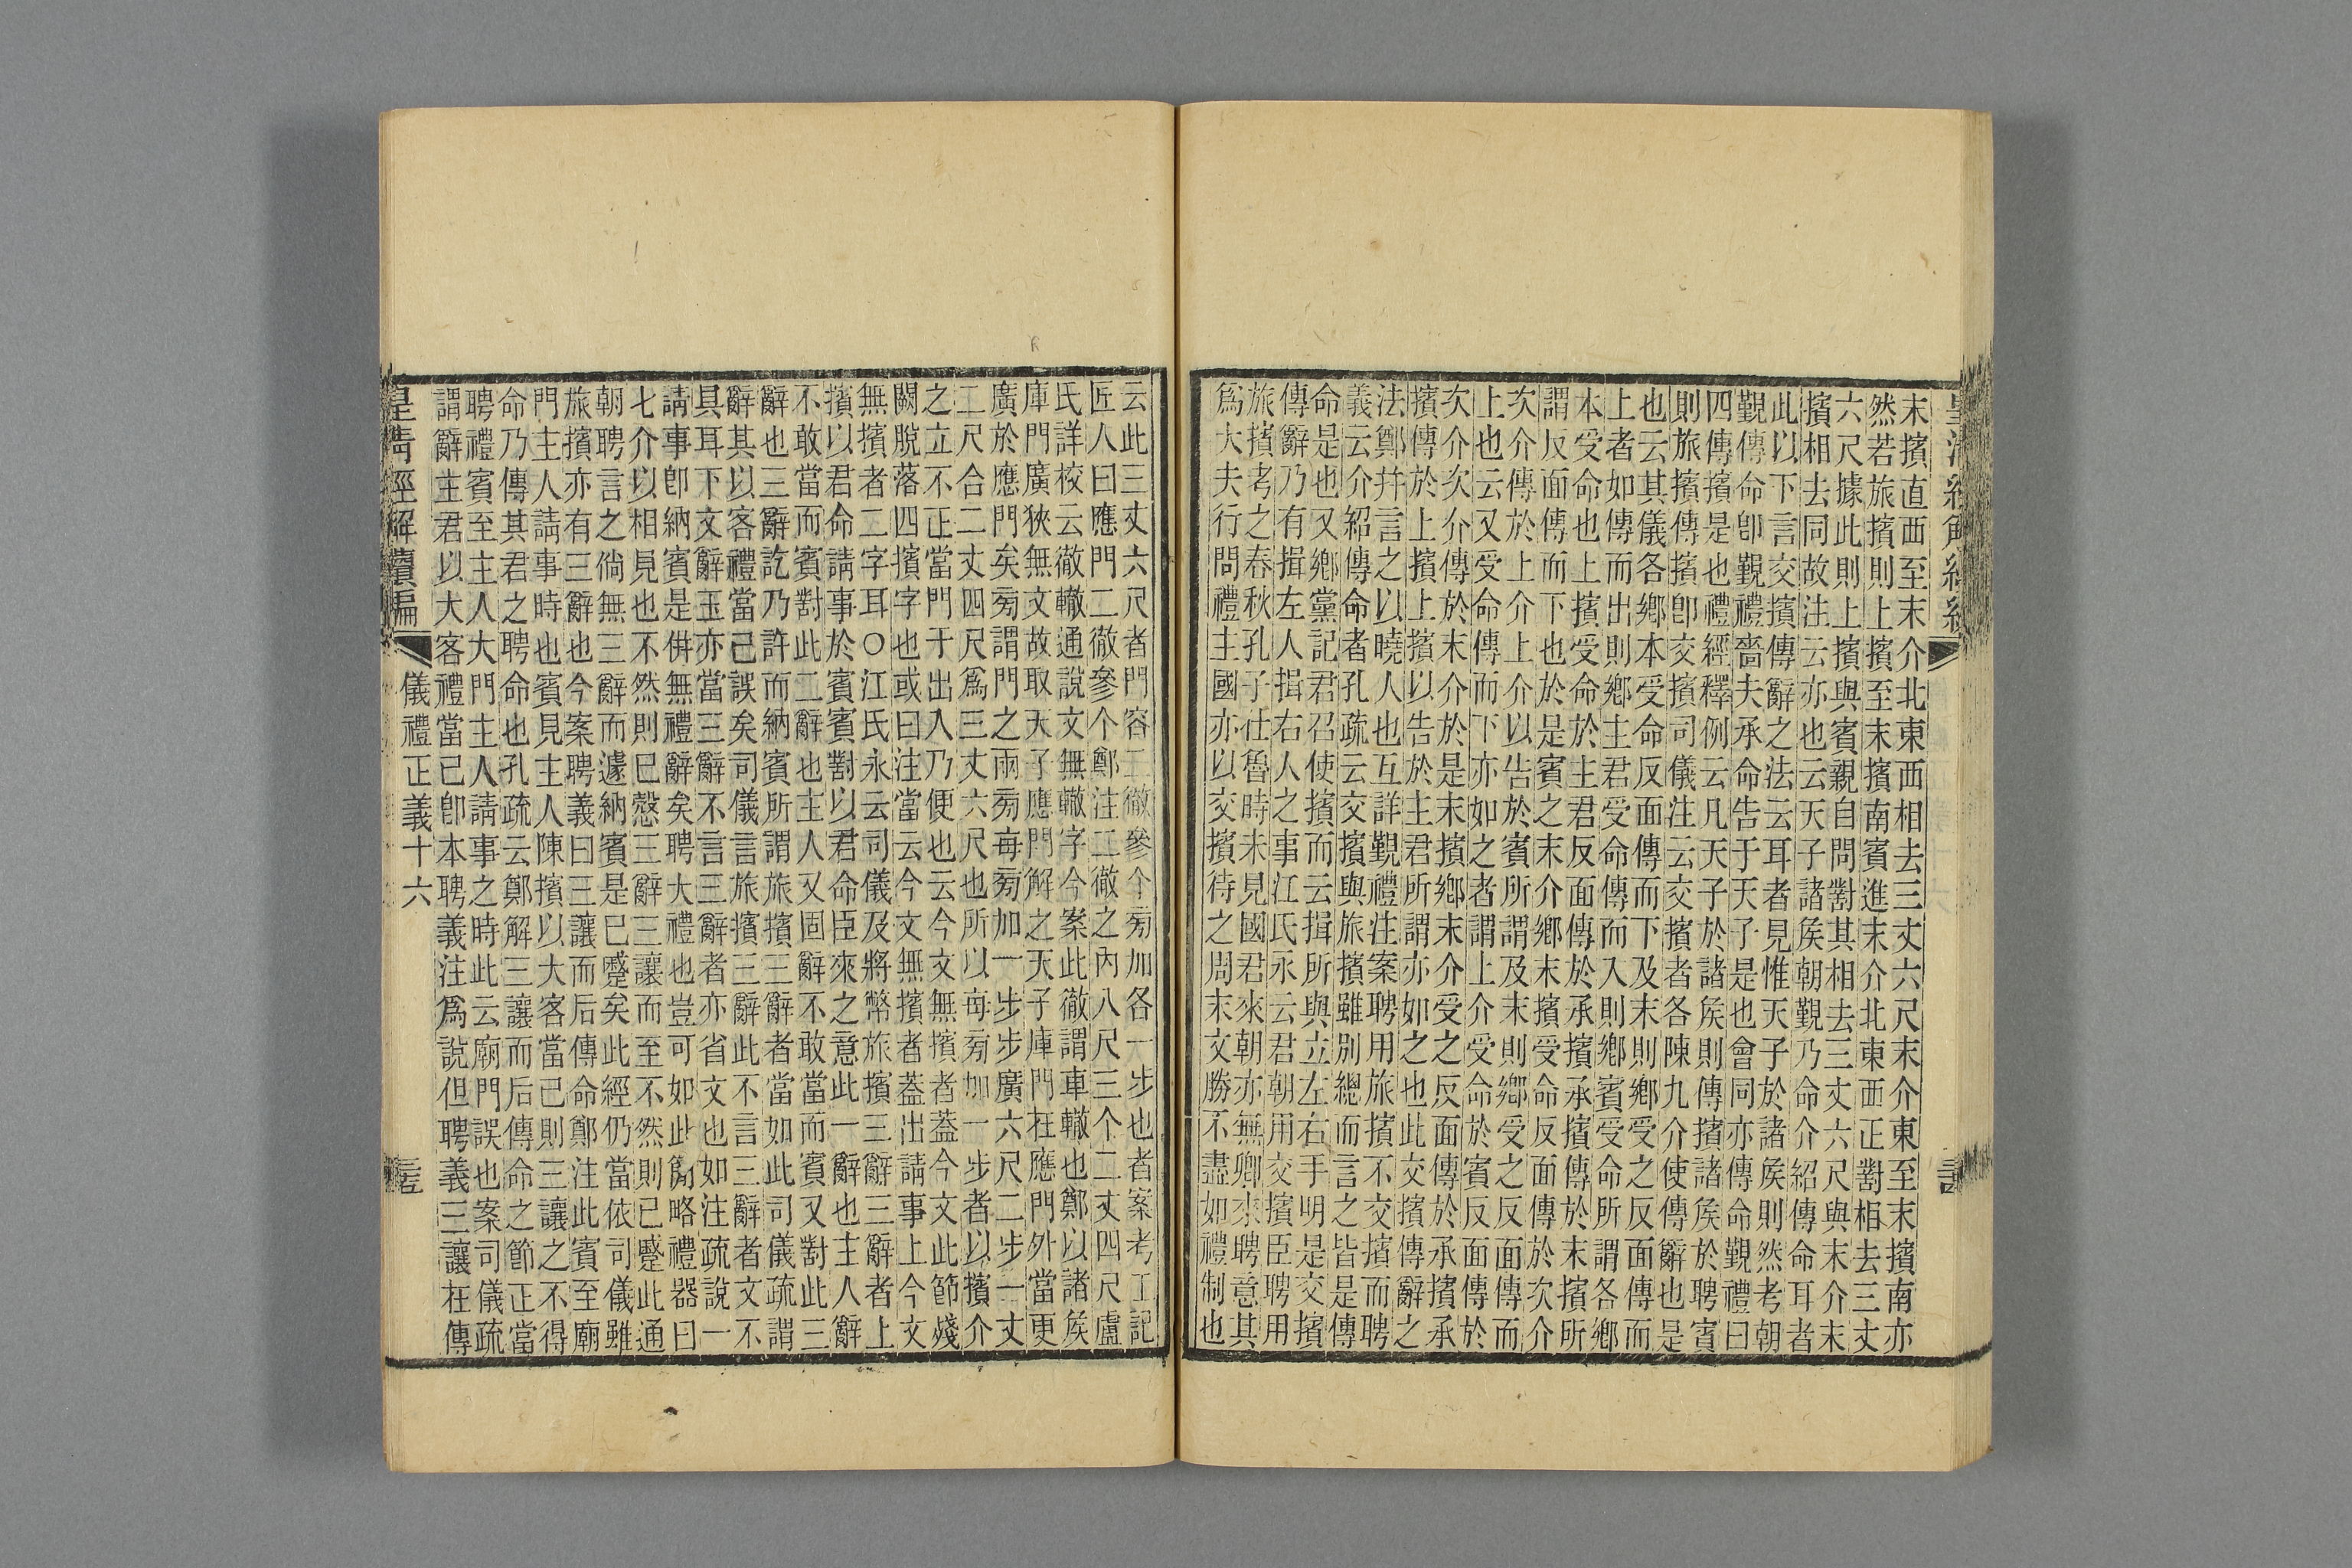 末擯直西至末介北東西相去三丈六尺末介東至末擯南亦
然若旅擯則上擯至末擯南賓進末介北東西正對相去三丈
六尺據此則上擯與賓親自問對其相去三丈六尺與末介末
擯相去同故注云亦也云天子諸矦朝覲乃命介紹傳命耳者
此以下言交擯傳辭之法云耳者見惟天子於諸矦則然考朝
覲傳命卽覲禮嗇夫承命告于天子是也會同亦傳命覲禮曰
四傳擯是也禮經釋例云凡天子於諸矦則傳擯諸矦於聘賓
則旅擯傳擯卽交擯司儀注云交擯者各陳九介使傳辭也是
也云其儀各鄉本受命反面傳而下及末則鄉受之反面傳而
上者如傳而出則鄉主君受命傳而入則鄉賓受命所謂各鄉
本受命也上擯受命於主君反面傳於承擯承擯傳於末擯所
謂反面傳而下也於是賓之末介鄉末擯受命反面傳於次介
次介傳於上介上介以告於賓所謂及末則鄉受之反面傳而
上也云又受命傳而下亦如之者謂上介受命於賓反面傳於
次介次介傳於末介於是末擯鄉末介受之反面傳於承擯承
擯傳於上擯上擯以告於主君所謂亦如之也此交擯傳辭之
法鄭幷言之以曉人也互詳覲禮注案聘用旅擯不交擯而聘
義云介紹傳命者孔疏云交擯與旅擯雖別總而言之皆是傳
命是也又鄉黨記君召使擯而云揖所與立左右手明是交擯
傳辭乃有揖左人揖右人之事江氏永云君朝用交擯臣聘用
旅擯考之春秋孔子仕魯時未見國君來朝亦無卿來聘意其
爲大夫行問禮主國亦以交擯待之周末文勝不盡如禮制也
云此三丈六尺者門容二徹參个㫄加各一步也者案考工記
匠人曰應門二徹參个鄭注二徹之內八尺三个二丈四尺盧
氏詳校云徹轍通說文無轍字今案此徹謂車轍也鄭以諸矦
庫門廣狹無文故取天子應門解之天子庫門在應門外當更
廣於應門矣㫄謂門之兩㫄每㫄加一步步廣六尺二步一丈
二尺合二丈四尺爲三丈六尺也所以每㫄加一步者以擯介
之立不正當門于出入乃便也云今文無擯者蓋今文此節㦮
闕脫落四擯字也或曰注當云今文無擯者蓋出請事上今文
無擯者二字耳〇江氏永云司儀及將幣旅擯三辭三辭者上
擯以君命請事於賓賓對以君命臣來之意此一辭也主人辭
不敢當而賓對此二辭也主人又固辭不敢當而賓又對此三
辭也三辭訖乃許而納賓所謂旅擯三辭者當如此司儀疏謂
辭其以客禮當己誤矣司儀言旅擯三辭此不言三辭者文不
具耳下文辭玉亦當三辭不言三辭者亦省文也如注疏說一
請事卽納賓是倂無禮辭矣聘大禮也豈可如此𥳑略禮器曰
七介以相見也不然則已愨三辭三讓而至不然則已蹙此通
朝聘言之倘無三辭而遽納賓是已蹙矣此經仍當依司儀雖
旅擯亦有三辭也今案聘義曰三讓而后傳命鄭注此賓至廟
門主人請事時也賓見主人陳擯以大客當己則三讓之不得
命乃傳其君之聘命也孔疏云鄭解三讓而后傳命之節正當
聘禮賓至主人大門主人請事之時此云廟門誤也案司儀疏
謂辭主君以大客禮當己卽本聘義注爲說但聘義三讓在傳
皇清經解續編
儀禮正義十六